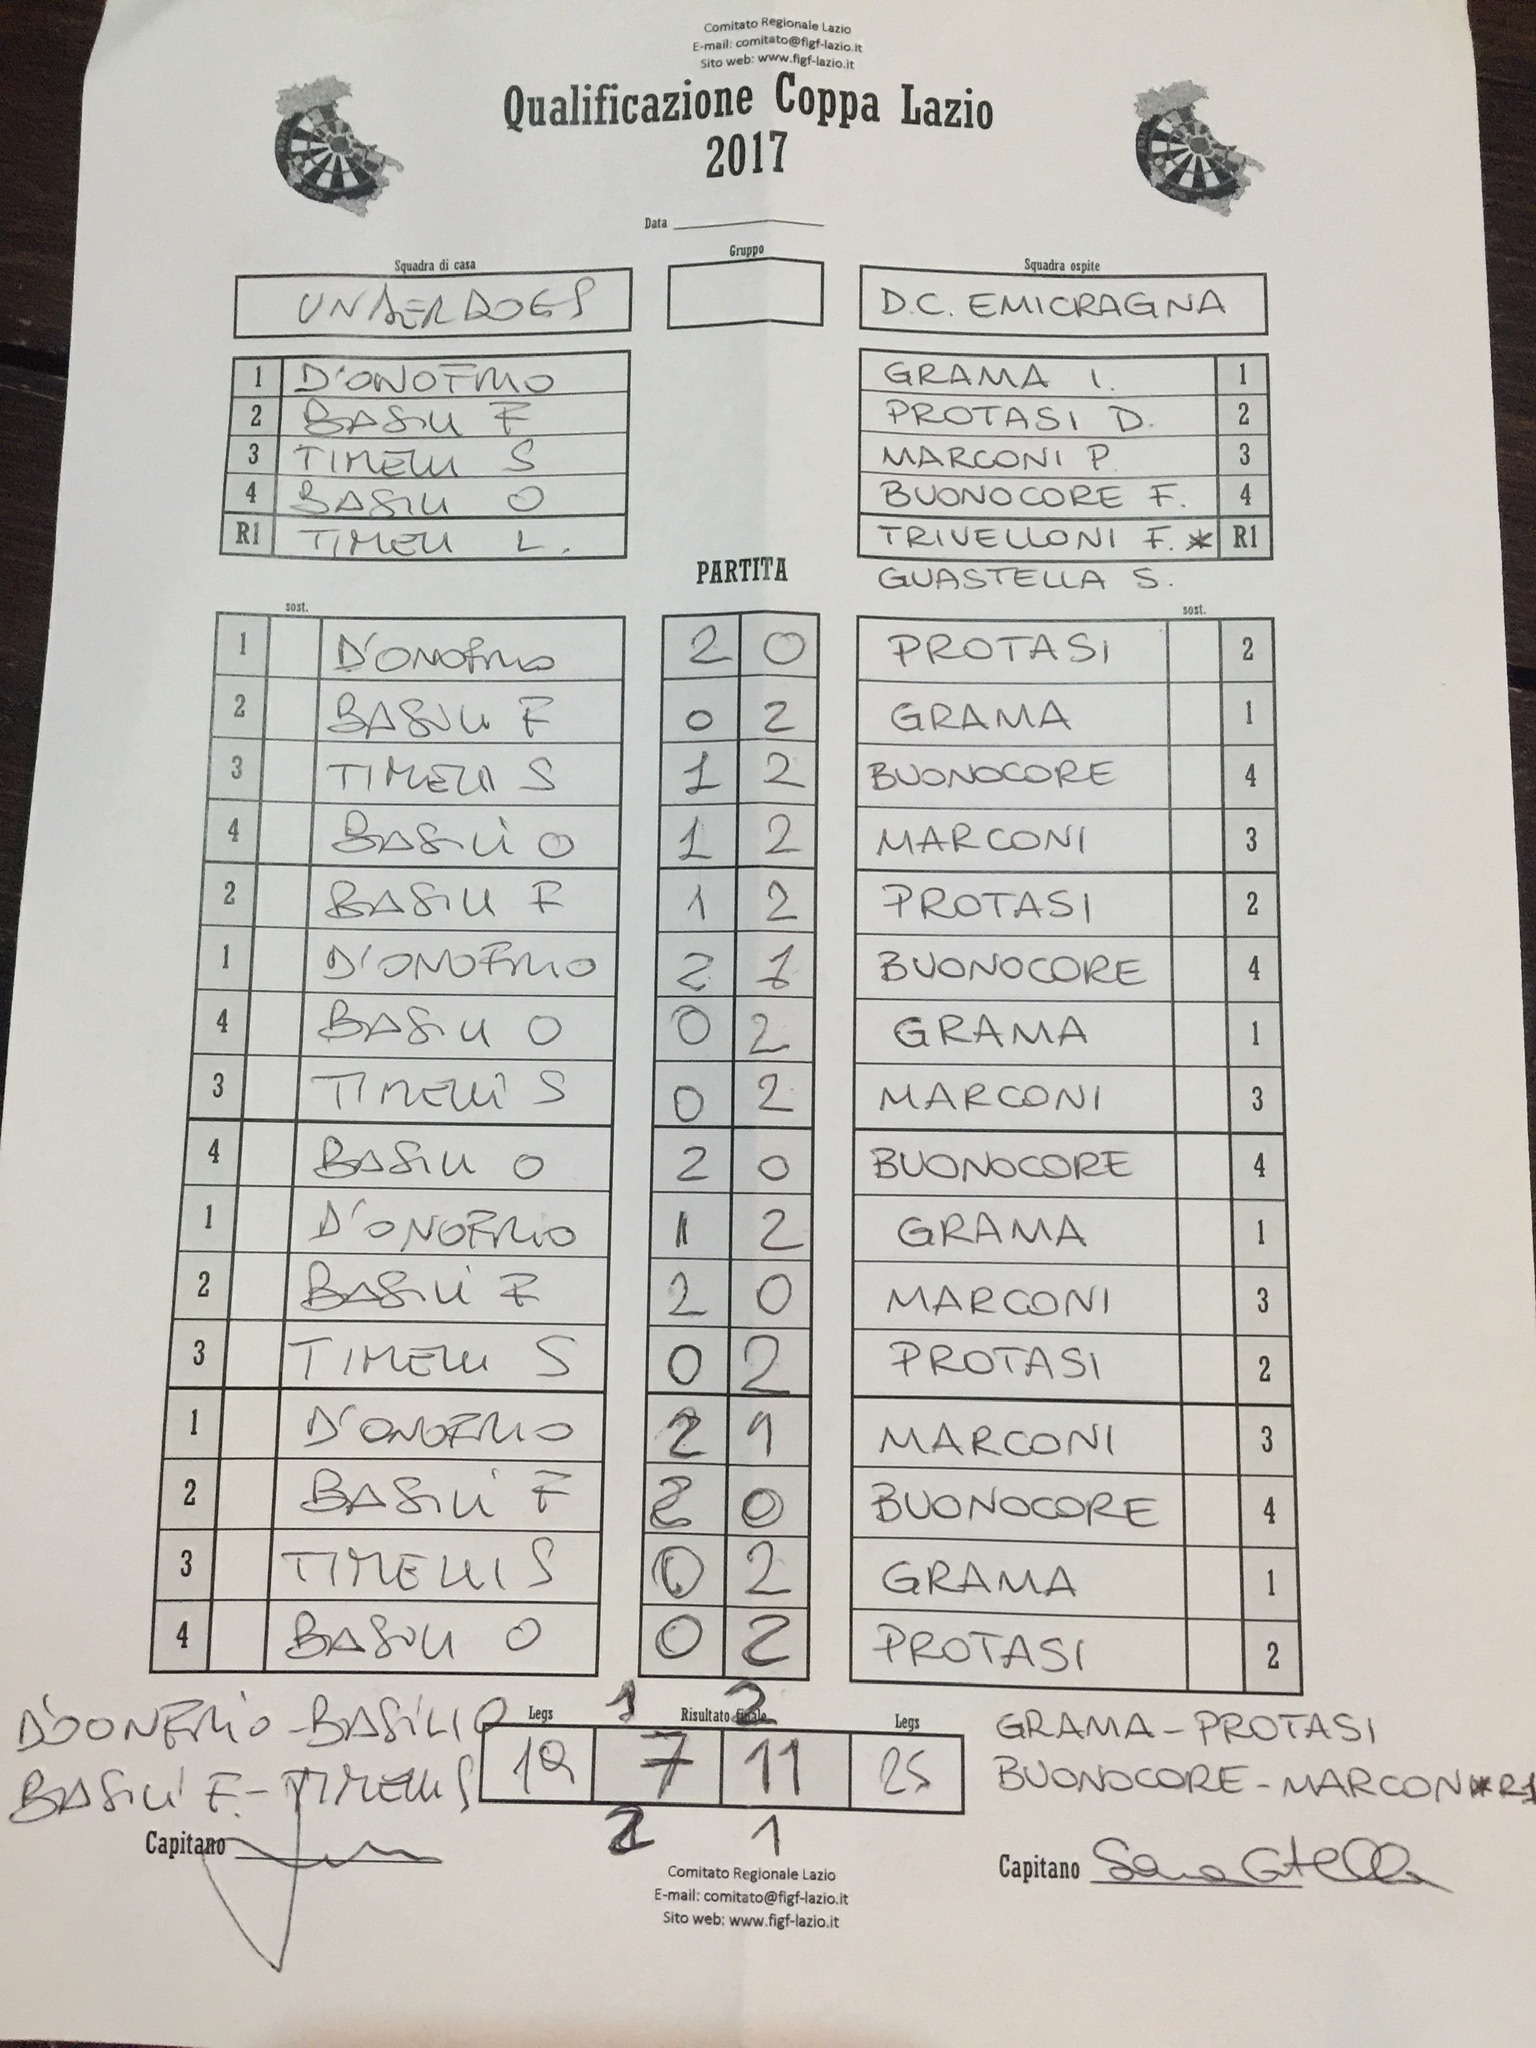 Comitato Regionale Lazio
E-mail: comitato@figf-lazio.it
Sito web: www.figf-lazio.it
Qualificazione Coppa Lazio
2017
Data
Squadra di casa Gruppo Squadra ospite
UNDERDOGS D.C. EMICRAGNA
1 D'ONOFRIO GRAMA I. 1
2 BASILI F PROTASI D. 2
3 TIMELLI S MARCONI P. 3
4 BASILI O BUONOCORE F. 4
R1 TIMELLI L. TRIVELLONI F. * R1
PARTITA GUASTELLA S.
sost. sost.
1 D'ONOFRIO 2 0 PROTASI 2
2 BASILI F 0 2 GRAMA 1
3 TIMELLI S 1 2 BUONOCORE 4
4 BASILI O 1 2 MARCONI 3
2 BASILI F 1 2 PROTASI 2
1 D'ONOFRIO 2 1 BUONOCORE 4
4 BASILI O 0 2 GRAMA 1
3 TIMELLI S 0 2 MARCONI 3
4 BASILI O 2 0 BUONOCORE 4
1 D'ONOFRIO 1 2 GRAMA 1
2 BASILI F 2 0 MARCONI 3
3 TIMELLI S 0 2 PROTASI 2
1 D'ONOFRIO 2 1 MARCONI 3
2 BASILI F 2 0 BUONOCORE 4
3 TIMELLI S 0 2 GRAMA 1
4 BASILI O 0 2 PROTASI 2
D'OONFRIO - BASILI O 1 2 GRAMA - PROTASI
Legs Risultato finale Legs
BASILI F. - TIMELLI S 19 7 11 25 BUONOCORE - MARCONI *R1
2 1
Capitano Capitano
Comitato Regionale Lazio
E-mail: comitato@figf-lazio.it
Sito web: www.figf-lazio.it